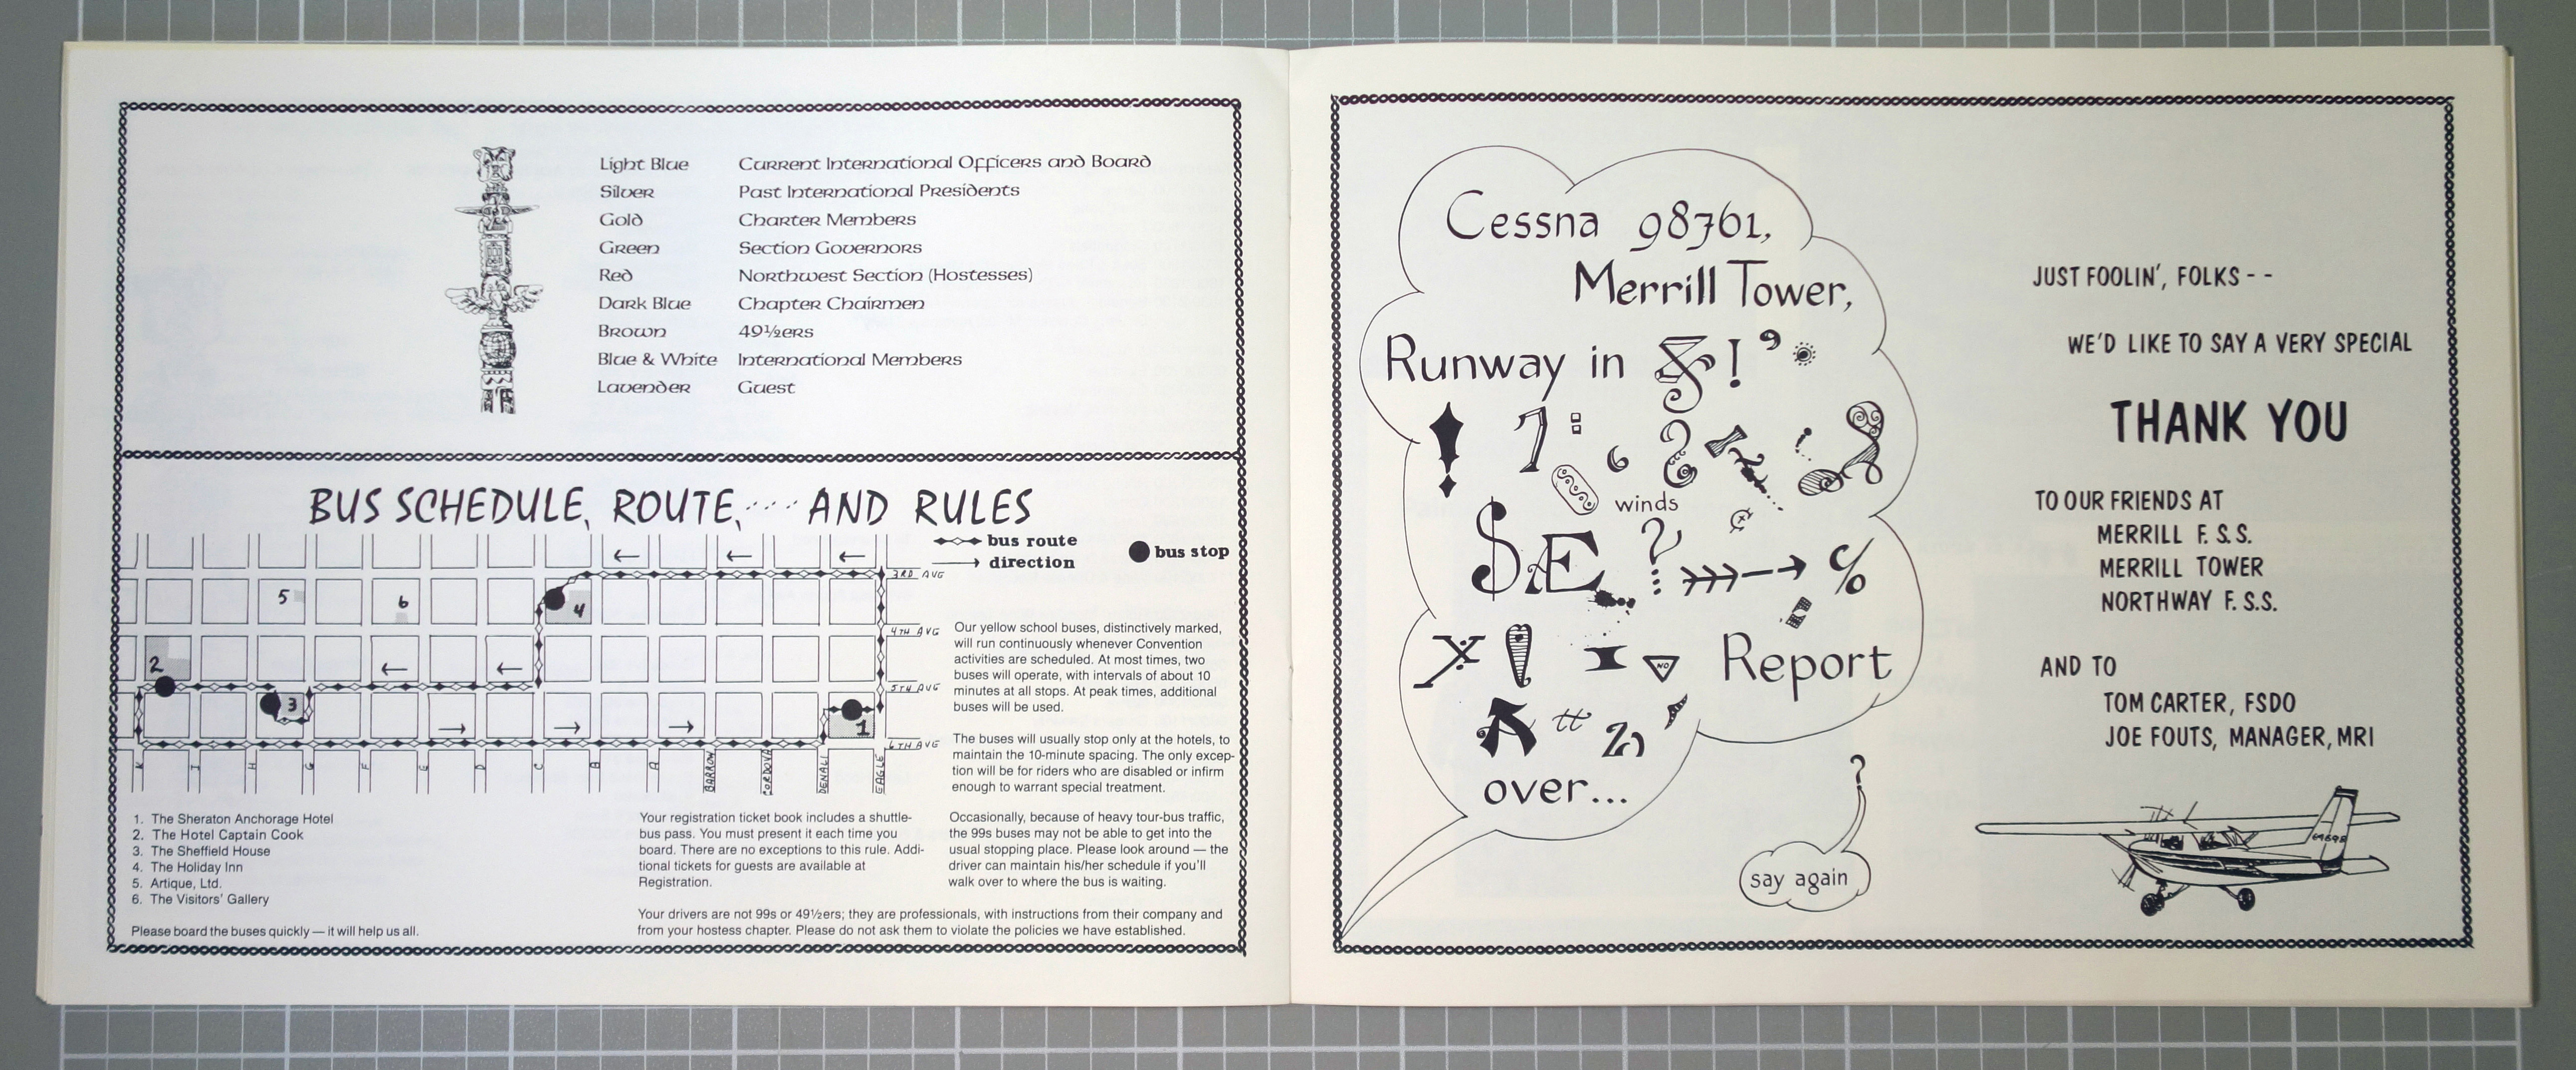 Light Blue Current International Officers and Board
Silver Past International Presidents
Gold Charter Members
Green Section Governors
Red Northwest Section (Hostesses)
Dark Blue Chapter Chairmen
Brown 49½ers
Blue & White International Members
Lavender Guest
BUS SCHEDULE, ROUTE, .... AND RULES
bus route
direction
bus stop
3RD AVG
4TH AVG
5TH AVG
6TH AVG
5
6
4
2
3
1
K I H G F E D C B A BARROW CORDOVA DENALI EAGLE
1. The Sheraton Anchorage Hotel
2. The Hotel Captain Cook
3. The Sheffield House
4. The Holiday Inn
5. Artique, Ltd.
6. The Visitors' Gallery
Please board the buses quickly — it will help us all.
Your registration ticket book includes a shuttle-
bus pass. You must present it each time you
board. There are no exceptions to this rule. Addi-
tional tickets for guests are available at
Registration.
Our yellow school buses, distinctively marked,
will run continuously whenever Convention
activities are scheduled. At most times, two
buses will operate, with intervals of about 10
minutes at all stops. At peak times, additional
buses will be used.
The buses will usually stop only at the hotels, to
maintain the 10-minute spacing. The only excep-
tion will be for riders who are disabled or infirm
enough to warrant special treatment.
Occasionally, because of heavy tour-bus traffic,
the 99s buses may not be able to get into the
usual stopping place. Please look around — the
driver can maintain his/her schedule if you'll
walk over to where the bus is waiting.
Your drivers are not 99s or 49½ers; they are professionals, with instructions from their company and
from your hostess chapter. Please do not ask them to violate the policies we have established.
Cessna 98761,
Merrill Tower,
Runway in
winds
$Æ ? %
NO
Report
over...
say again
?
JUST FOOLIN', FOLKS --
WE'D LIKE TO SAY A VERY SPECIAL
THANK YOU
TO OUR FRIENDS AT
MERRILL F.S.S.
MERRILL TOWER
NORTHWAY F.S.S.
AND TO
TOM CARTER, FSDO
JOE FOUTS, MANAGER, MRI